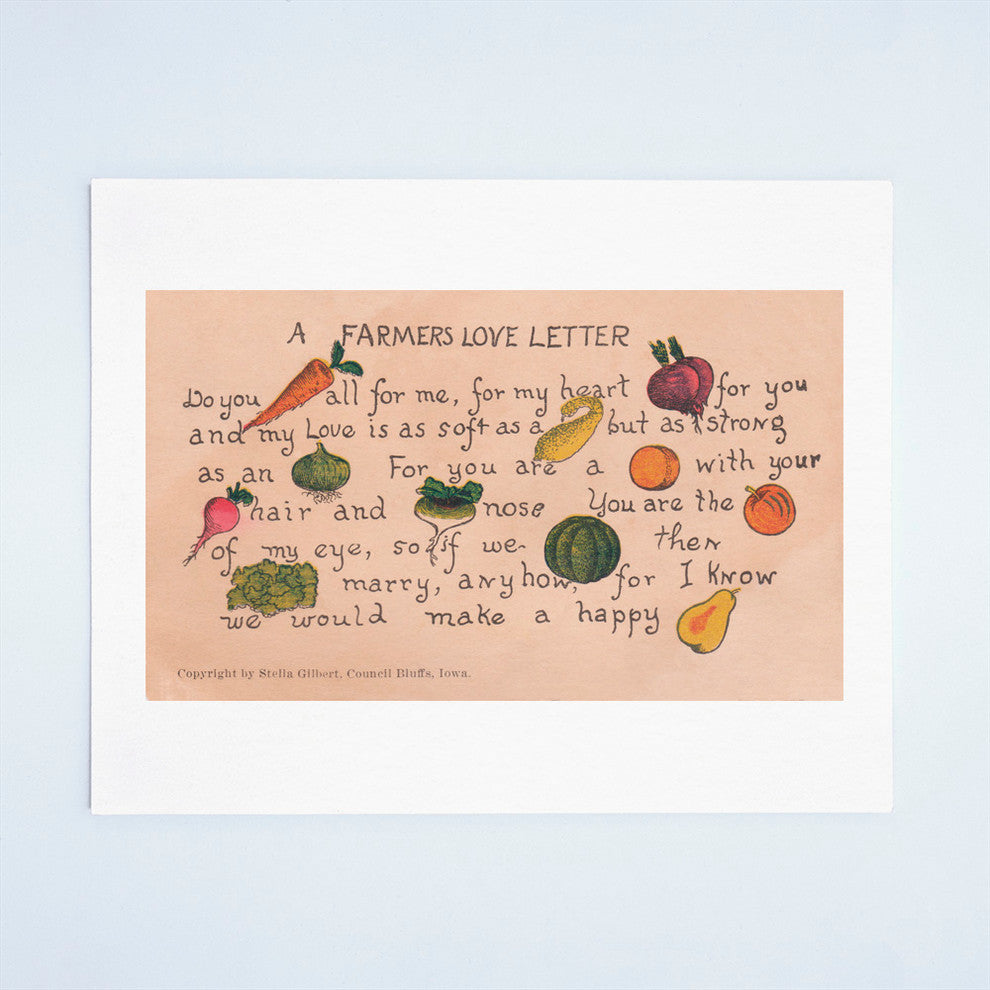 A FARMERS LOVE LETTER
Do you all for me, for my heart for you
and my Love is as soft as a but as strong
as an For you are a with your
hair and nose You are the
of my eye, so if we- then
marry, anyhow, for I know
we would make a happy
Copyright by Stella Gilbert, Council Bluffs, Iowa.